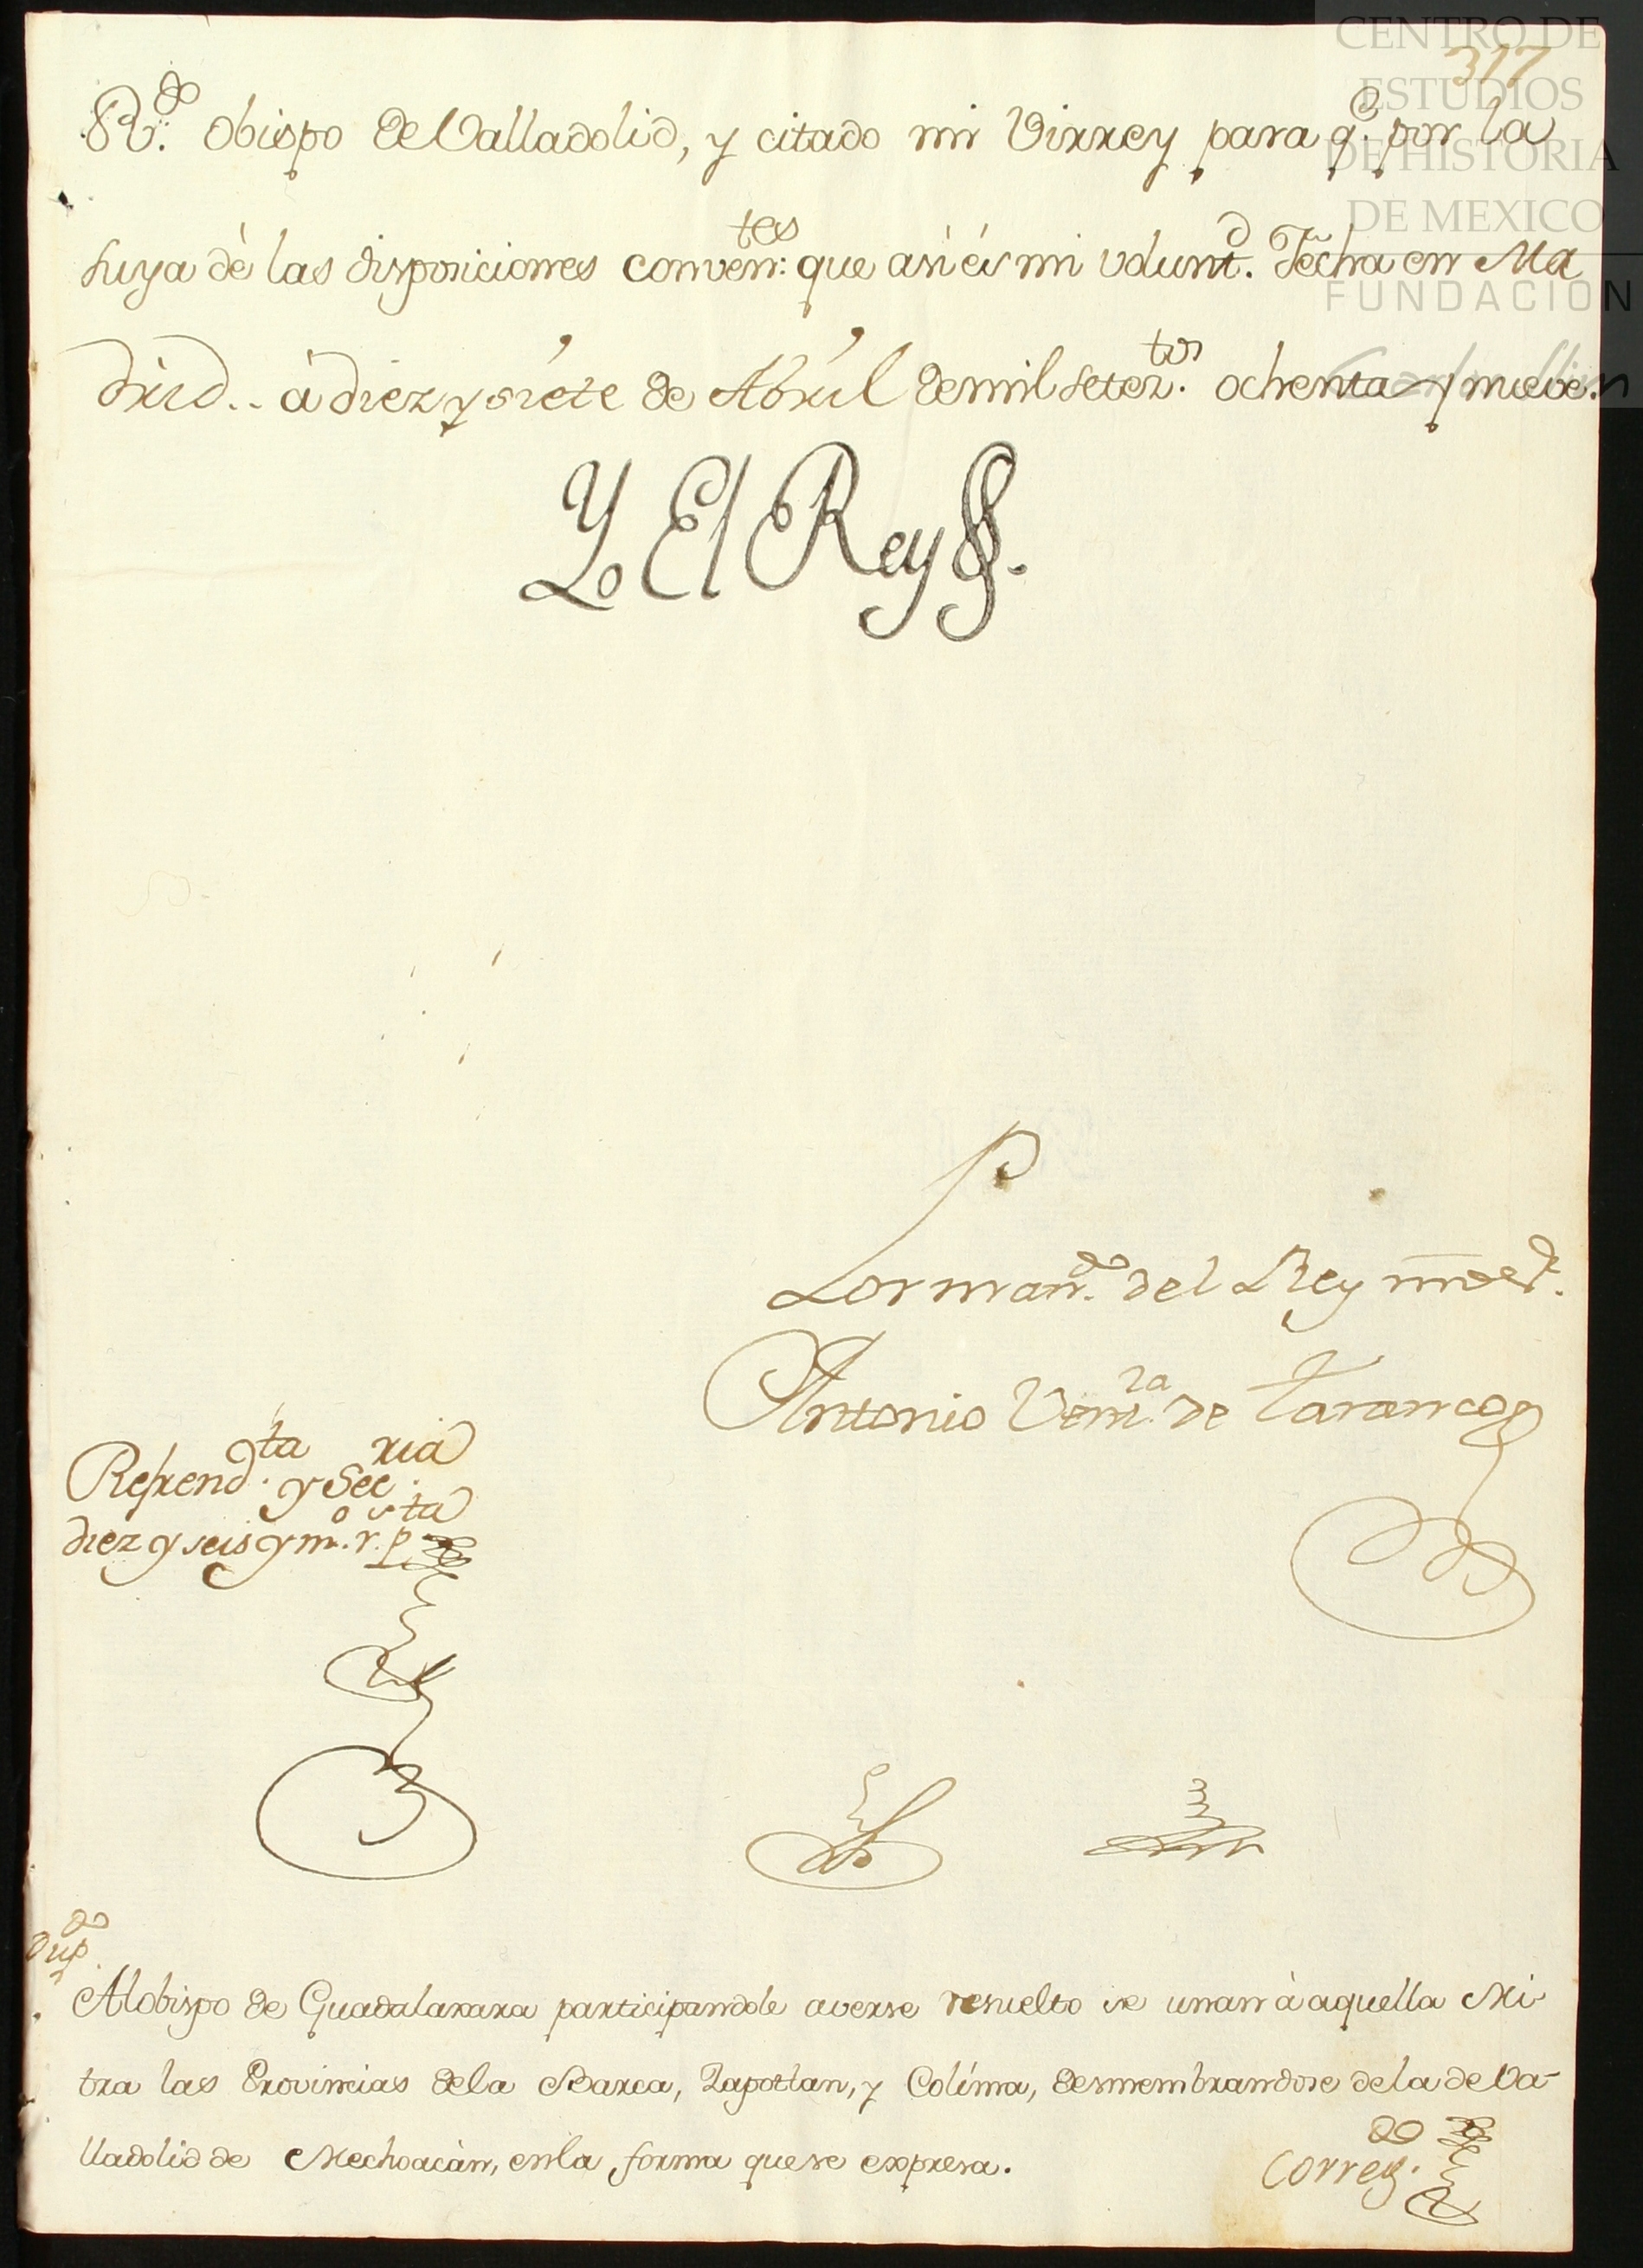 CENTRO DE
ESTUDIOS
DE HISTORIA
DE MEXICO
FUNDACIÓN
317
R.do Obispo de Valladolid, y citado mi Virrey para q.e por la
suya dè las disposiciones conven:tes que asi és mi volunt.d Fecha en Ma
drid.. à diez y siete de Abril de mil setez.tos ochenta y nueve.
Yo El Rey
Por man.do del Rey nro s.r
Antonio Vent.ra de Taranco
Refrend.ta y Sec.ria
diez y seis y m.o r.s p.ta
Dup.do
Al obispo de Guadalaxara participandole averse resuelto se unan à aquella Mi
tra las Provincias de la Barca, Zapotlan, y Colima, desmembrandose de la de Va-
lladolid de Mechoacàn, en la forma que se expresa.
Correg.do